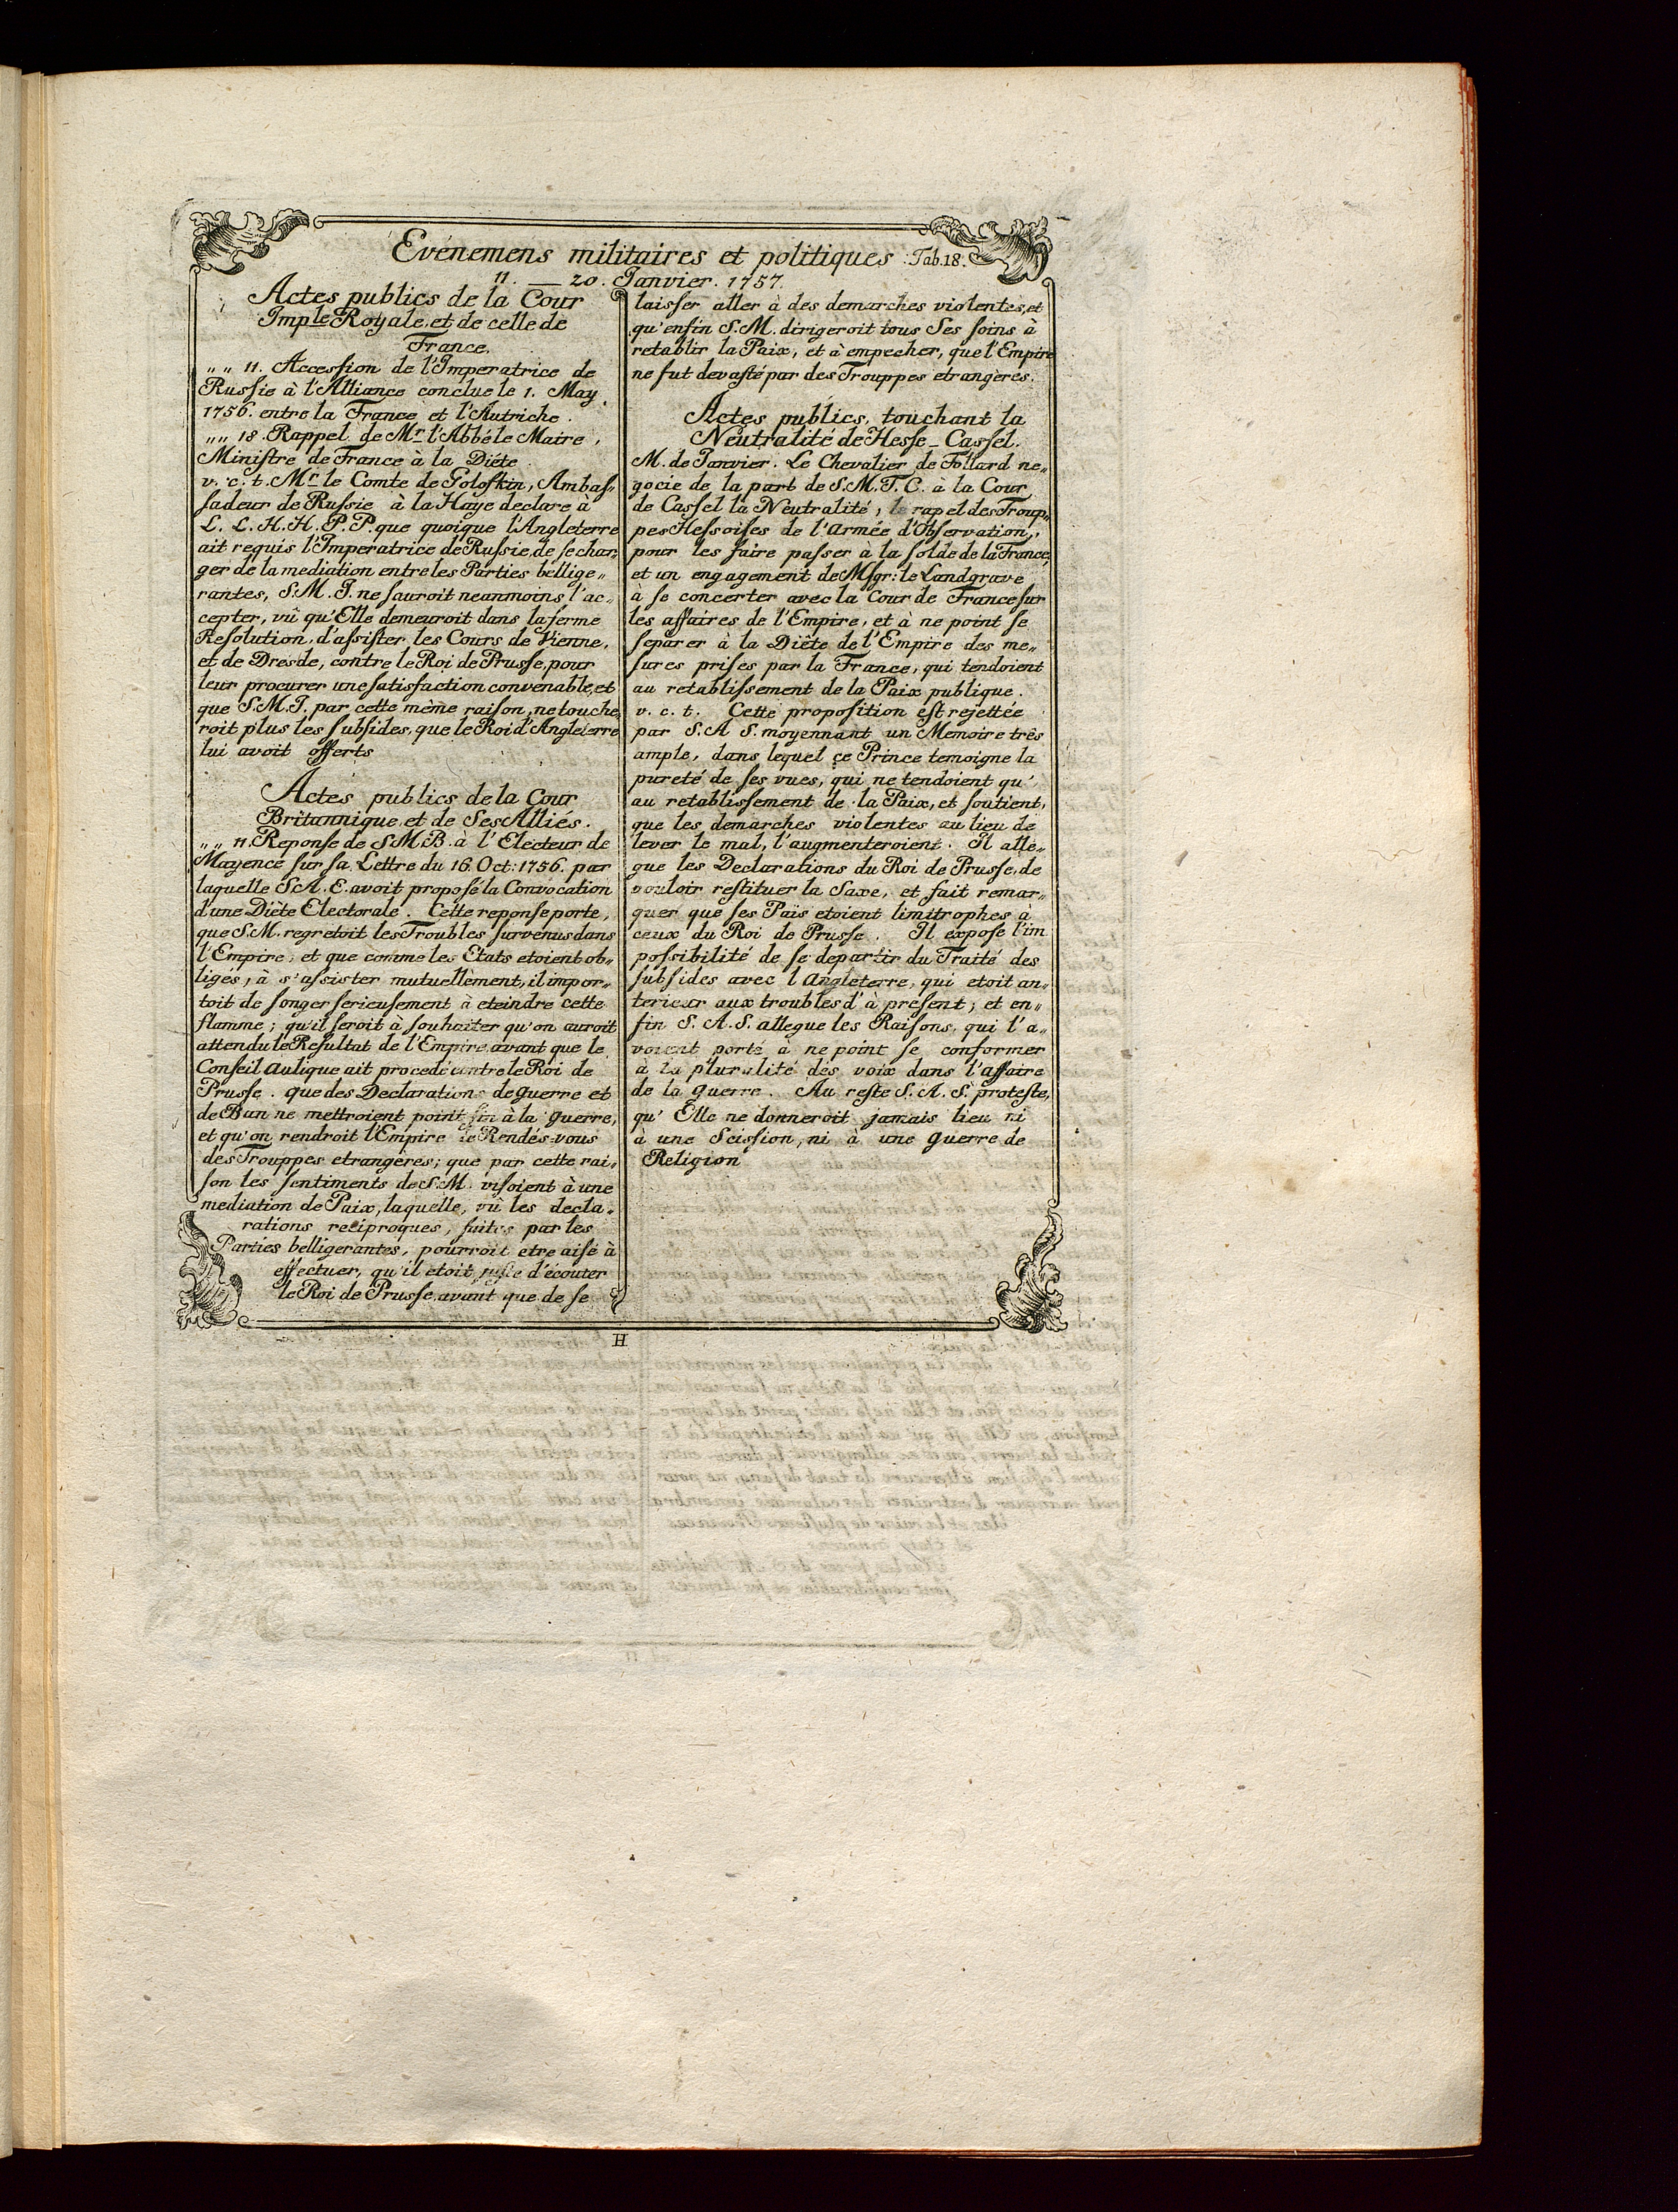 Evénemens militaires et politiques Tab. 18.
11. — 20. Janvier. 1757.
Actes publics de la Cour
Imp.le Royale, et de celle de
France.
„ „ 11. Accession de l'Imperatrice de
Russie à l'Alliance conclue le 1. May.
1756. entre la France et l'Autriche.
„ „ 18. Rappel de Mr. l'Abbé le Maire,
Ministre de France à la Diéte.
v. c. t. Mr. le Comte de Golofkin, Ambas„
sadeur de Russie à la Haye declare à
L. L. H. H. P. P. que quoique l'Angleterre
ait requis l'Imperatrice de Russie, de se char„
ger de la mediation entre les Parties bellige„
rantes, S.M.I. ne sauroit neanmoins l'ac„
cepter, vû qu'Elle demeuroit dans la ferme
Resolution, d'assister les Cours de Vienne,
et de Dresde, contre le Roi de Prusse, pour
leur procurer une satisfaction convenable, et
que S.M.I. par cette même raison, ne touche„
roit plus les subsides, que le Roi d'Angleterre
lui avoit offerts
Actes publics de la Cour
Britannique et de Ses Alliés.
„ „ 11. Reponse de S M B. à l'Electeur de
Mayence sur sa Lettre du 16. Oct: 1756. par
laquelle S A. E. avoit proposé la Convocation
d'une Diète Electorale. Cette reponse porte,
que S.M. regretoit les Troubles survenus dans
l'Empire, et que comme les Etats etoient ob„
ligés, à s'assister mutuellement, il impor„
toit de songer serieusement à eteindre cette
flamme; qu'il seroit à souhaiter qu'on auroit
attendu le Resultat de l'Empire, avant que le
Conseil Aulique ait procedé contre le Roi de
Prusse. que des Declarations de guerre et
de Ban ne mettroient point fin à la guerre,
et qu'on rendroit l'Empire le Rendés-vous
des Trouppes etrangères; que par cette rai„
son les sentiments de S.M. visoient à une
mediation de Paix, laquelle, vû les decla„
rations reciproques, faites par les
Parties belligerantes, pourroit etre aisé à
effectuer, qu'il etoit juste d'écouter
le Roi de Prusse, avant que de se
laisser aller à des demarches violentes, et
qu'enfin S.M. dirigeroit tous Ses soins à
retablir la Paix, et à empecher, que l'Empire
ne fut devasté par des Trouppes etrangères.
Actes publics, touchant la
Neutralité de Hesse-Cassel.
M. de Janvier. Le Chevalier de Follard ne„
gocie de la part de S.M.T.C. à la Cour
de Cassel la Neutralité, le rapel des Troup„
pes Hessoises de l'Armée d'Observation,
pour les faire passer à la solde de la France,
et un engagement de Msgr: le Landgrave
à se concerter avec la Cour de France sur
les affaires de l'Empire, et à ne point se
separer à la Diète de l'Empire des me„
sures prises par la France, qui tendoient
au retablissement de la Paix publique.
v. c. t. Cette proposition est rejettée
par S. A S. moyennant un Memoire très
ample, dans lequel ce Prince temoigne la
pureté de ses vues, qui ne tendoient qu'
au retablissement de la Paix, et soutient,
que les demarches violentes au lieu de
lever le mal, l'augmenteroient. Il alle„
gue les Declarations du Roi de Prusse, de
vouloir restituer la Saxe, et fait remar„
quer que ses Païs etoient limitrophes à
ceux du Roi de Prusse. Il expose l'im
possibilité de se departir du Traité des
subsides avec l Angleterre, qui etoit an„
terieur aux troubles d'à present; et en„
fin S. A. S. allegue les Raisons, qui l'a„
voient porté à ne point se conformer
à la pluralité des voix dans l'affaire
de la guerre. Au reste S. A. S. proteste,
qu' Elle ne donneroit jamais lieu ni
à une Scission, ni à une guerre de
Religion
H